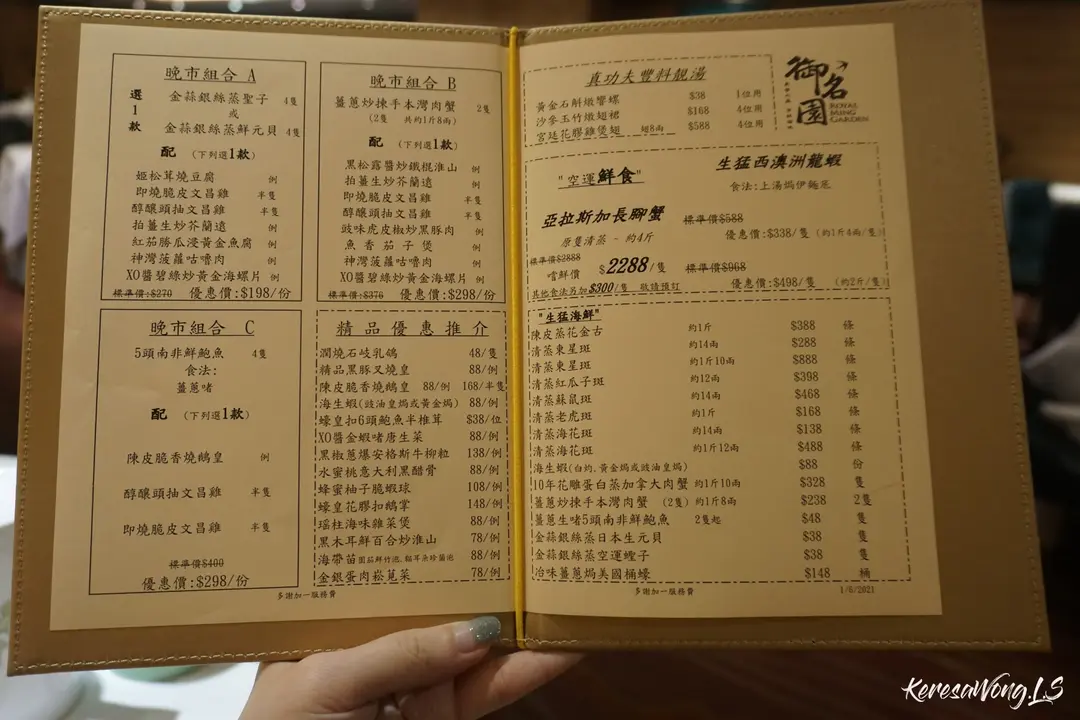 晚市組合 A
選1款
金蒜銀絲蒸聖子 4隻
或
金蒜銀絲蒸鮮元貝 4隻
配 (下列選1款)
姬松茸燒豆腐 例
即燒脆皮文昌雞 半隻
醇釀頭抽文昌雞 半隻
拍薑生炒芥蘭遠 例
紅茄勝瓜浸黃金魚腐 例
神灣菠蘿咕嚕肉 例
XO醬碧綠炒黃金海螺片 例
標準價:$270 優惠價:$198/份
晚市組合 B
薑蔥炒揀手本灣肉蟹 2隻
(2隻 共約1斤8両)
配 (下列選1款)
黑松露醬炒鐵棍淮山 例
拍薑生炒芥蘭遠 例
即燒脆皮文昌雞 半隻
醇釀頭抽文昌雞 半隻
豉味虎皮椒炒黑豚肉 例
魚香茄子煲 例
神灣菠蘿咕嚕肉 例
XO醬碧綠炒黃金海螺片 例
標準價:$376 優惠價:$298/份
晚市組合 C
5頭南非鮮鮑魚 4隻
食法:
薑蔥啫
配 (下列選1款)
陳皮脆香燒鵝皇 例
醇釀頭抽文昌雞 半隻
即燒脆皮文昌雞 半隻
標準價$400
優惠價:$298/份
精品優惠推介
潤燒石岐乳鴿 48/隻
精品黑豚叉燒皇 88/例
陳皮脆香燒鵝皇 88/例 168/半隻
海生蝦(豉油皇焗或黃金焗) 88/例
蠔皇扣6頭鮑魚半椎茸 $38/位
XO醬金蝦啫唐生菜 88/例
黑椒蔥爆安格斯牛柳粒 138/例
水蜜桃意大利黑醋骨 88/例
蜂蜜柚子脆蝦球 108/例
蠔皇花膠扣鵝掌 148/例
瑤柱海味雜菜煲 88/例
黑木耳鮮百合炒淮山 78/例
海帶苗 88/例
金銀蛋肉崧莧菜 78/例
多謝加一服務費
真功夫豐料靚湯
黃金石斛燉響螺 $38 1位用
沙參玉竹燉翅裙 $168 4位用
宮廷花膠雞煲翅 翅8両 $588 4位用
御名園
ROYAL
MING
GARDEN
"空運鮮食"
生猛西澳洲龍蝦
食法:上湯焗伊麵底
標準價$588
優惠價:$338/隻 (約1斤4両/隻)
標準價$968
優惠價:$498/隻 (約2斤/隻)
亞拉斯加長腳蟹
原隻清蒸 ~ 約4斤
標準價$2888
嚐鮮價 $2288/隻
其他食法另加$300/隻 敬請預訂
"生猛海鮮"
陳皮蒸花金古 約1斤 $388 條
清蒸東星斑 約14両 $288 條
清蒸東星斑 約1斤10両 $888 條
清蒸紅瓜子斑 約12両 $398 條
清蒸蘇鼠斑 約14両 $468 條
清蒸老虎斑 約1斤 $168 條
清蒸海花斑 約14両 $138 條
清蒸海花斑 約1斤12両 $488 條
海生蝦(白灼.黃金焗或豉油皇焗) $88 份
10年花雕蛋白蒸加拿大肉蟹 約1斤10両 $328 隻
薑蔥炒揀手本灣肉蟹 (2隻) 約1斤8両 $238 2隻
薑蔥生啫5頭南非鮮鮑魚 2隻起 $48 隻
金蒜銀絲蒸日本生元貝 $38 隻
金蒜銀絲蒸空運蟶子 $38 隻
冶味薑蔥焗美國桶蠔 $148 桶
多謝加一服務費
1/6/2021
KeresaWong.LS